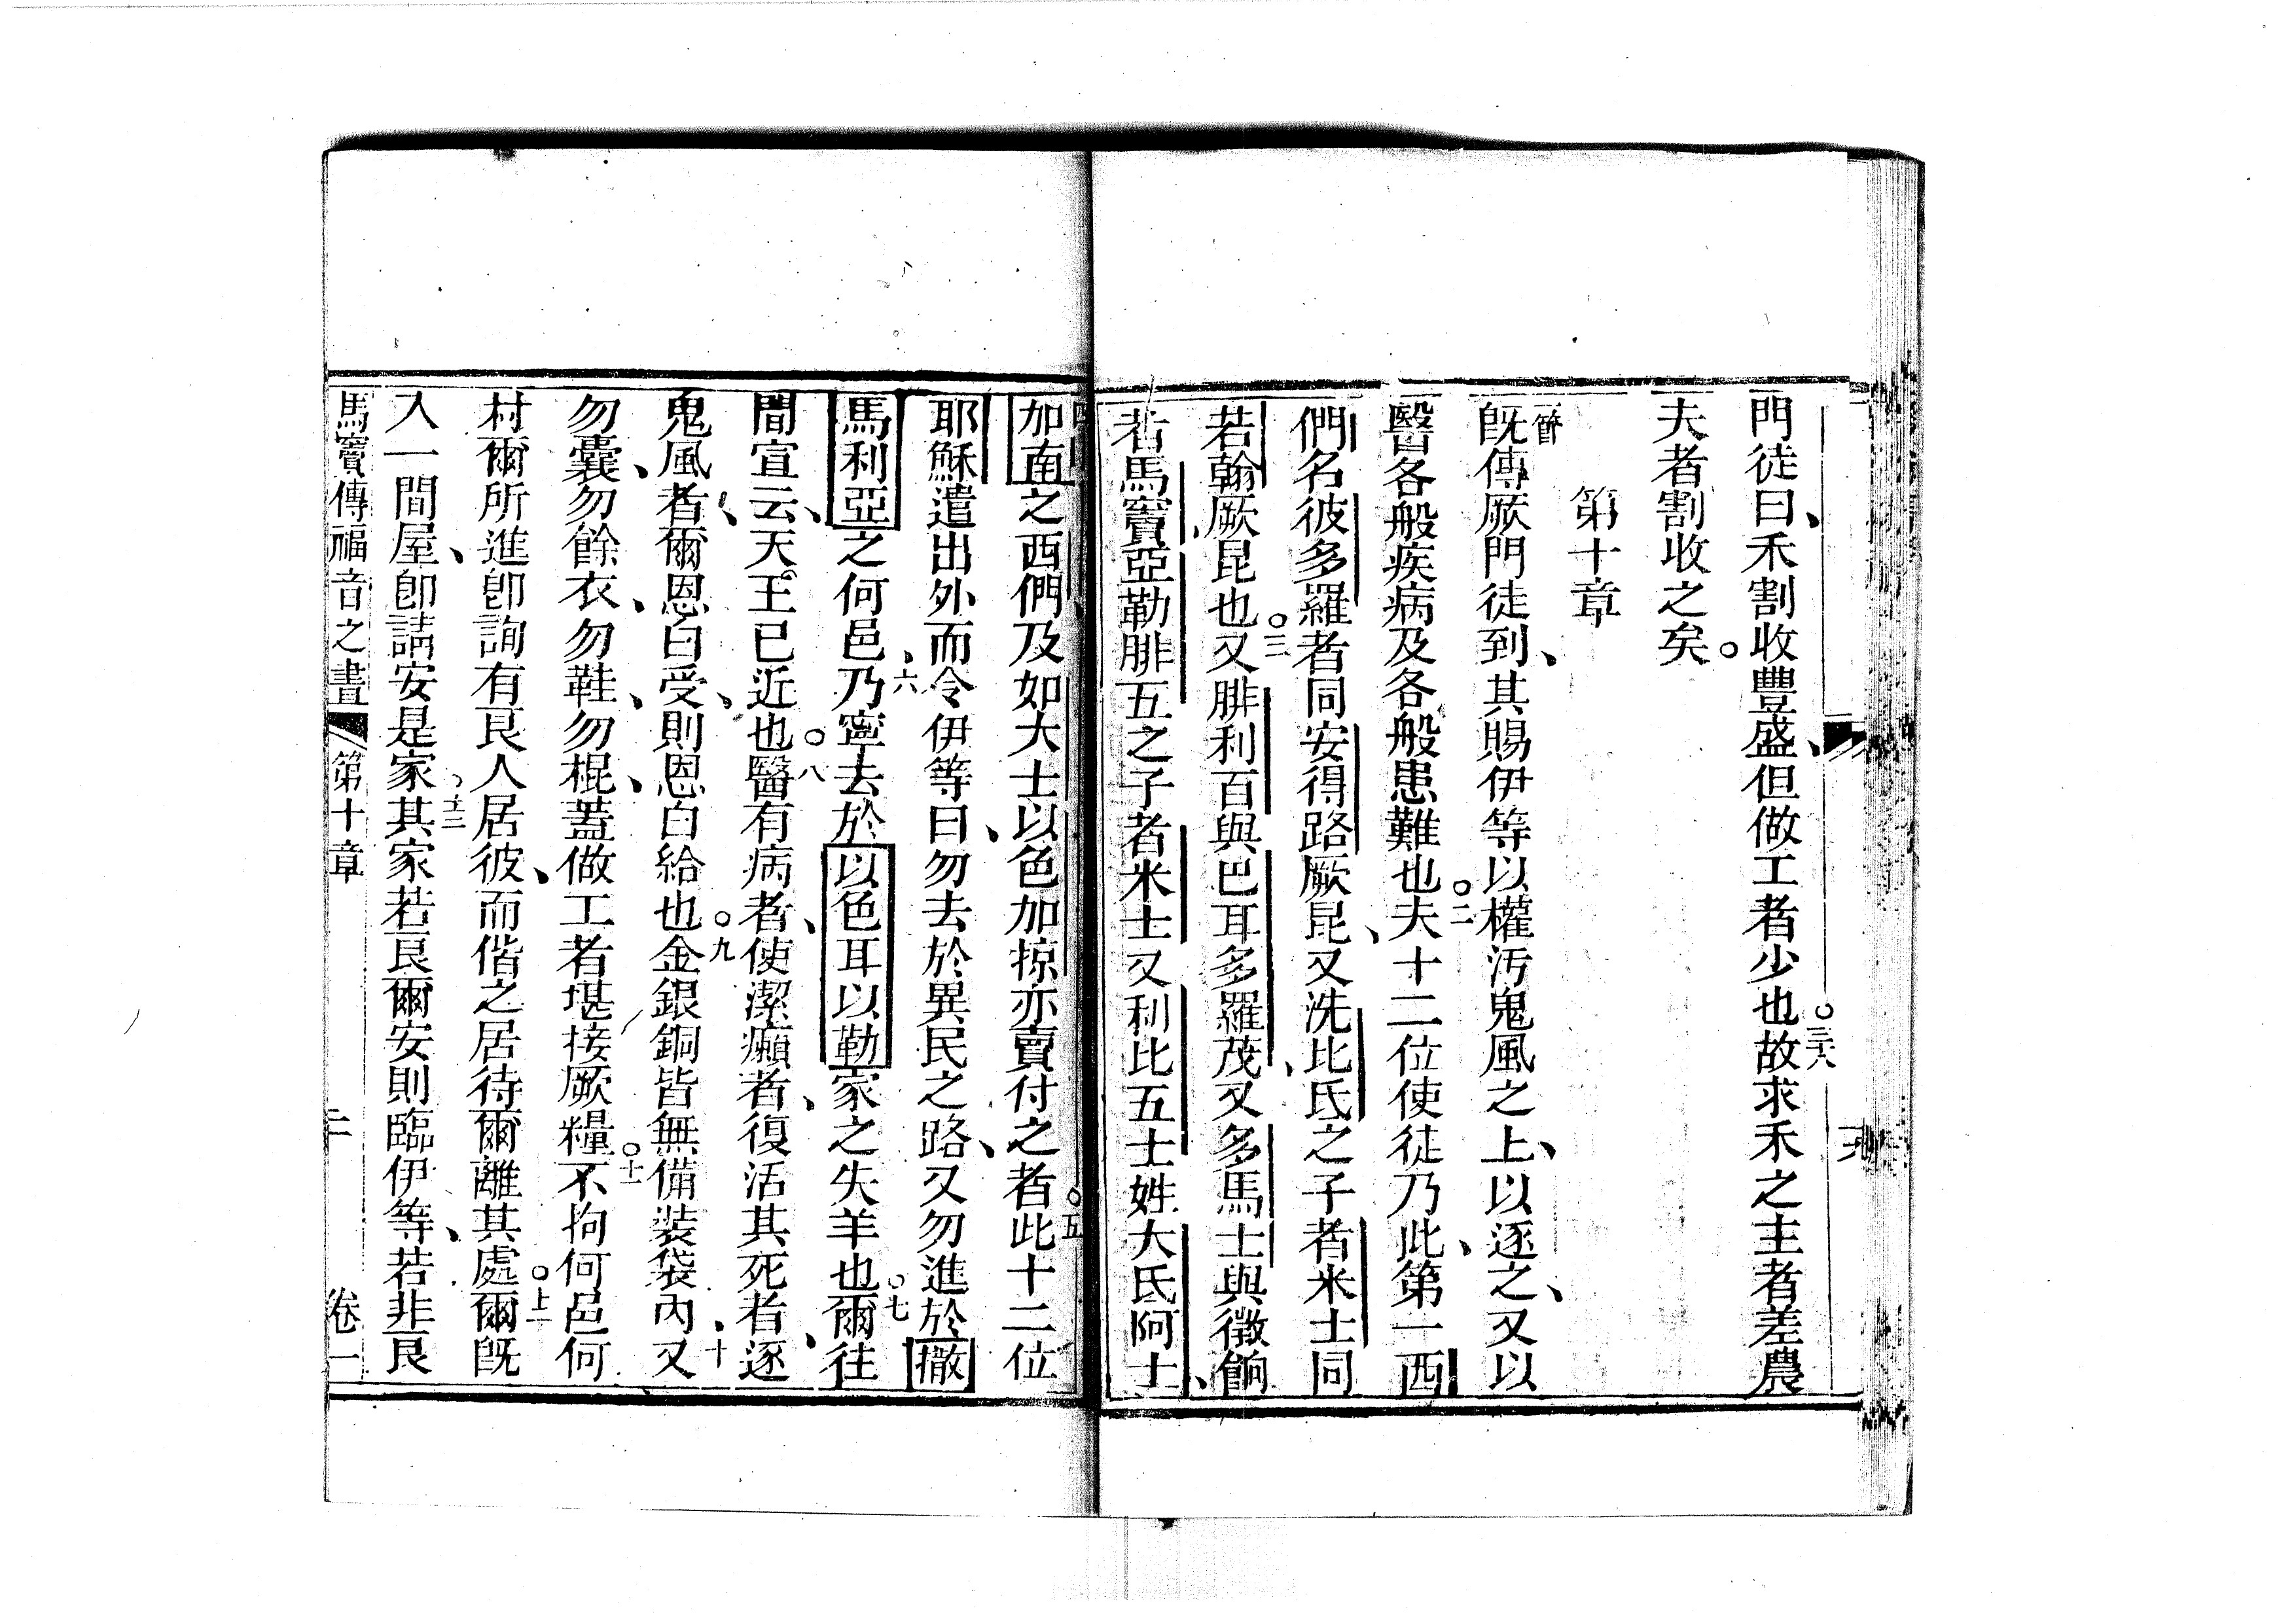 門徒曰、禾割收豐盛、但做工者少也。三八故求禾之主者差農
夫者割收之矣。
第十章
節既傳厥門徒到、其賜伊等以權汚鬼風之上、以逐之、又以
醫各般疾病及各般患難也。二夫十二位使徒乃此、第一西
們名彼多羅者同安得路厥昆、又洗比氏之子者米士同
若翰厥昆也。三又腓利百與巴耳多羅茂、又多馬士與徵餉
者馬竇、亞勒腓五之子者米士又利比五士姓大氏阿士、
加南之西們及如大士以色加掠亦賣付之者。五此十二位
耶穌遣出外而令伊等曰、勿去於異民之路、又勿進於撒
馬利亞之何邑、六乃寧去於以色耳以勒家之失羊也。七爾往
間宣云、天王已近也。八醫有病者、使潔癩者、復活其死者、逐
鬼風者、爾恩白受、則恩白給也。九金銀銅皆無備裝袋內、十又
勿囊、勿餘衣、勿鞋、勿棍、蓋做工者堪接厥糧。十一不拘何邑何
村爾所進卽詢有良人居彼、而偕之居待爾離其處。十二爾既
入一間屋、卽請安是家。十三其家若良爾安則臨伊等、若非良
馬竇傳福音之書 第十章 二 卷一